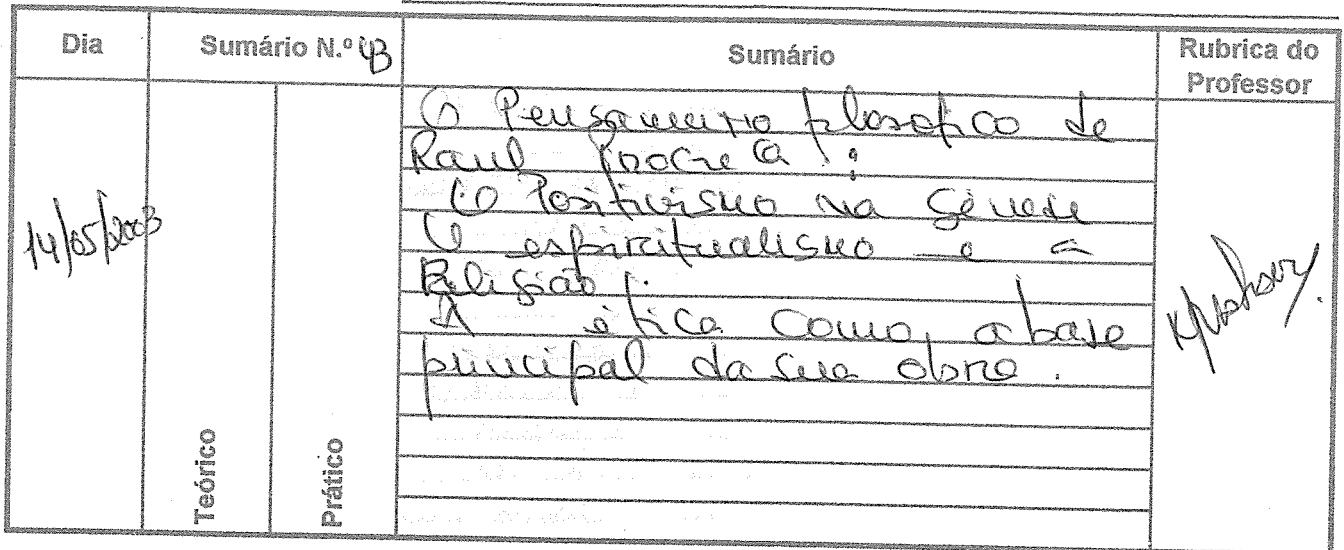 Dia
Sumário N.º 43
Sumário
Rubrica do
Professor
14/05/2003
O Pensamento filosofico de
Raul Proença:
O Positivismo na Génese
O espiritualismo e a
Religião.
A ética como a base
principal da sua obra.
Teórico
Prático